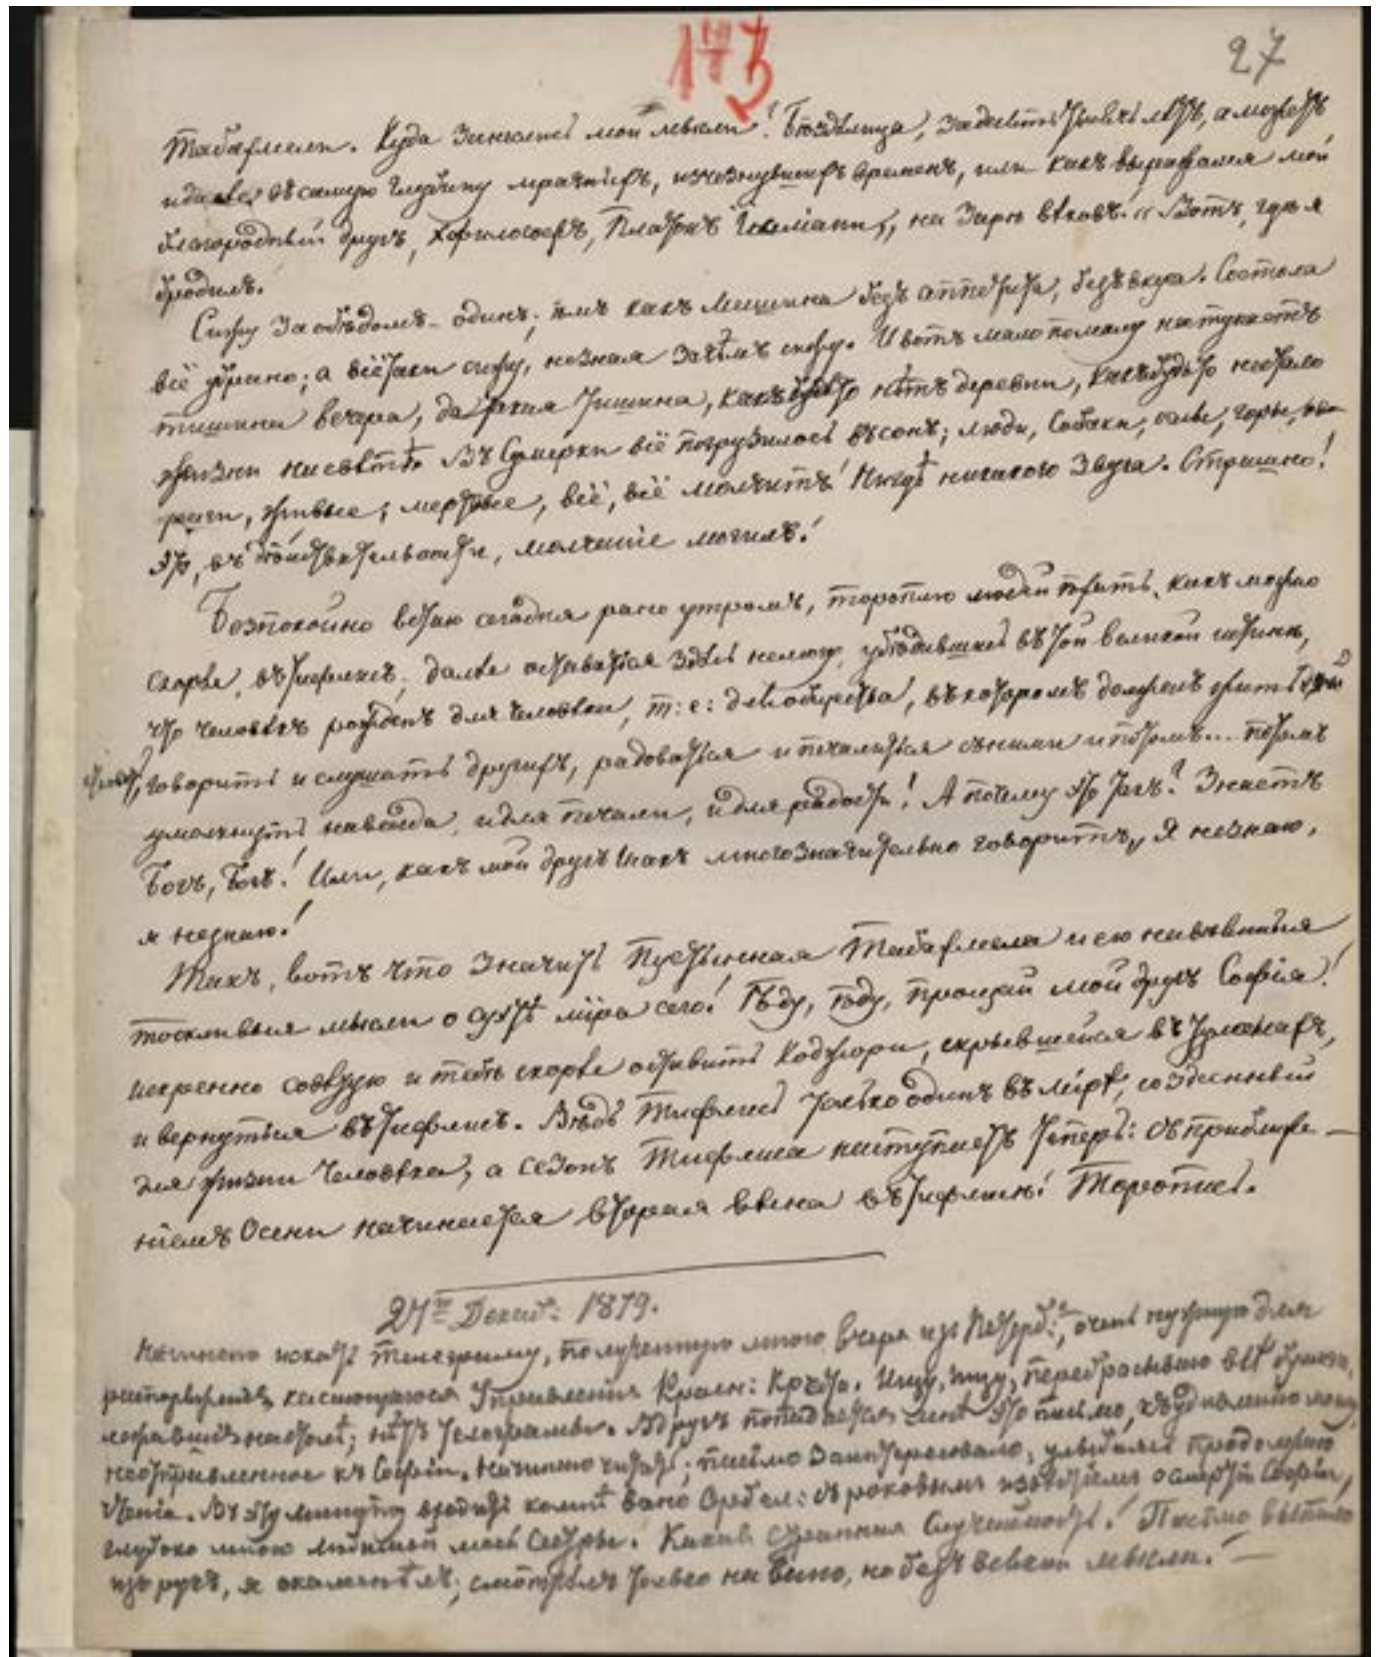 173
27
Табахмели. Куда занеслись мои мысли! Бездѣлица, за девять тысячъ лѣтъ, а можетъ
и далѣе въ самую глубину мрачныхъ, изчезнувшихъ временъ, или какъ выражался мой
благородный другъ, философъ, Платонъ на Зарѣ вѣковъ." Вотъ, гдѣ я
бродилъ.
Сижу за обѣдомъ одинъ; ѣмъ какъ машина безъ аппетита, безъ вкуса. Со стола
всё убрано; а всё таки сижу, не зная зачѣмъ сижу. И вотъ мало помалу наступаетъ
тишина вечера, да такая тишина, какъ будто нѣтъ деревни, какъ будто не стало
жизни на свѣтѣ. Въ Сумерки всё погрузилось въ сонъ; люди, собаки, горы,
живые; мертвые, всё, всё молчитъ! Нигдѣ никакого звука. Страшно!
Это, въ дѣйствительности, молчание могилъ!
Безпокойно встаю сегодня рано утромъ, тороплю людей ѣхать, какъ можно
скорѣе, въ Тифлисъ; далѣе оставаться здѣсь не могу, убѣдившись въ той великой истинѣ,
что человѣкъ рожденъ для человѣка, т: е: для общества, въ которомъ долженъ жить
говорить и слушать другихъ, радоваться и печалиться съ ними и потомъ... потомъ
умолкнуть навсегда, и для печали, и для радости! А почему это такъ? Знаетъ
Богъ, Богъ! Или, какъ мой другъ Исакъ многозначительно говоритъ, „Я не знаю,
я не знаю!
Такъ, вотъ что значитъ пустынная Табахмела и ею навѣянныя
тоскливыя мысли о суетѣ міра сего! Ѣду, Ѣду, прощай мой другъ Софія!
искренно совѣтую и тебѣ скорѣе оставить Коджори, скрывшейся въ туманахъ,
и вернуться въ Тифлисъ. Вѣдь Тифлисъ только одинъ въ мірѣ, созданный
для жизни человѣка, а сезонъ Тифлиса наступаетъ теперь: съ приближе-
ніемъ Осени начинается вторая весна въ Тифлисѣ! Торопись.
27го Декаб: 1879.
Начинаю искать телеграмму, полученную мною вчера изъ Петерб:, очень нужную для
касающагося Управленія Ищу, ищу, перебрасываю всѣ бумаги,
лежавшія на столѣ; нѣтъ телеграммы. Вдругъ попадается мнѣ это письмо, къ удивленію моему,
неотправленное къ Софіи. Начинаю читать; письмо заинтересовало, улыбаясь продолжаю
чтеніе. Въ эту минуту входитъ ко мнѣ Вано Орбел: съ роковымъ извѣстіемъ о смерти Софіи,
глубоко мною любимой моей Сестры. Какая странная случайность! Письмо выпало
изъ рукъ, я окаменѣлъ; смотрѣлъ только на Вано, но безъ всякой мысли! —